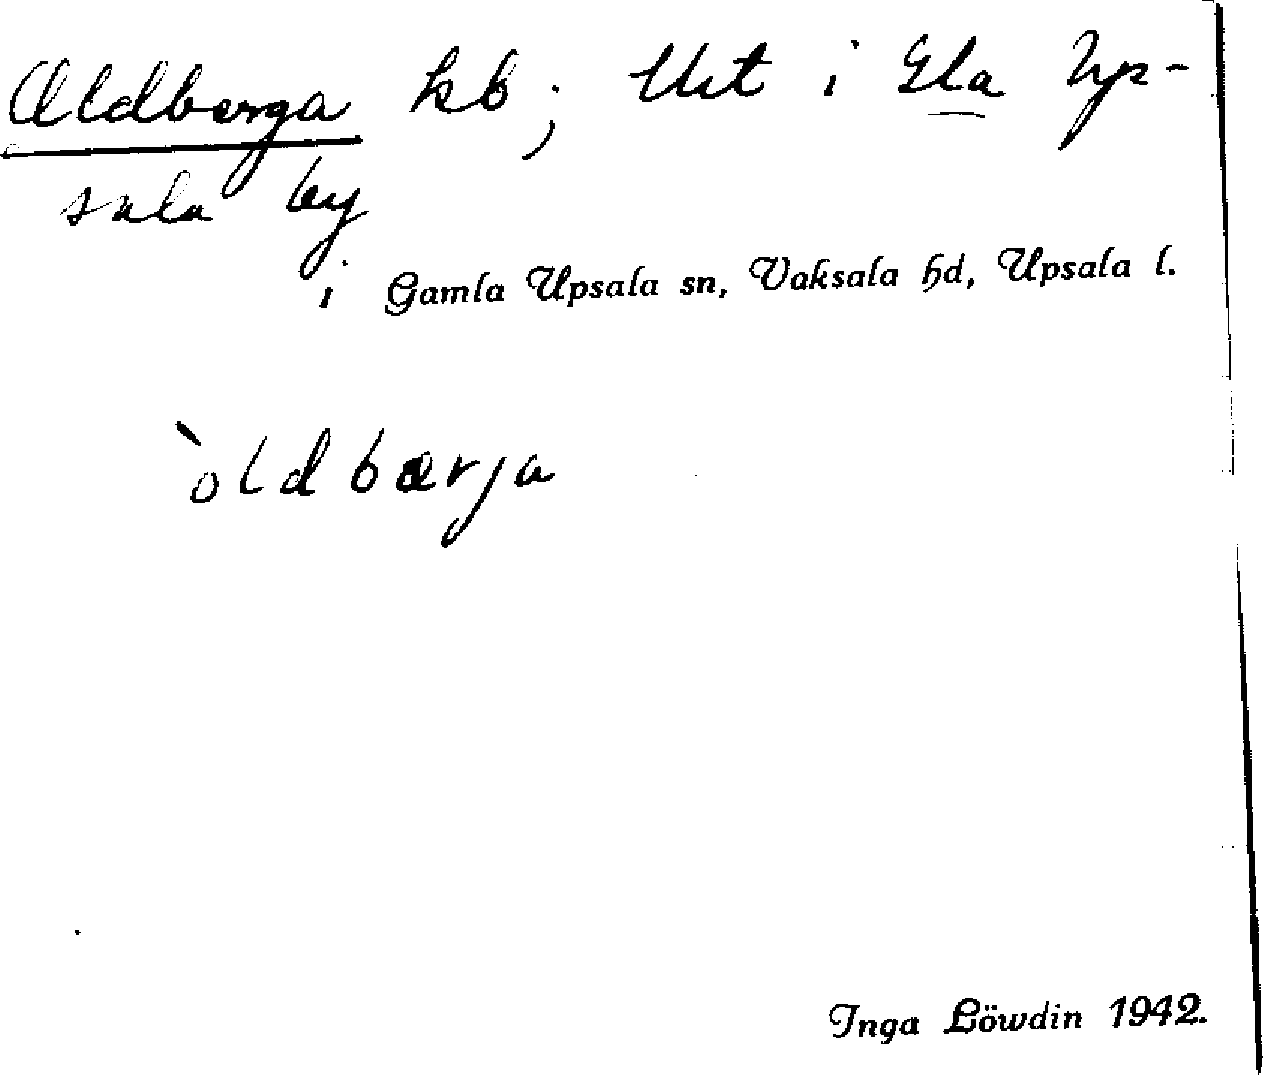 Aldberga hb; Urt i Gla Up-
sala by
i Gamla Upsala sn, Vaksala hd, Upsala l.
`oldbærja
Inga Löwdin 1942.